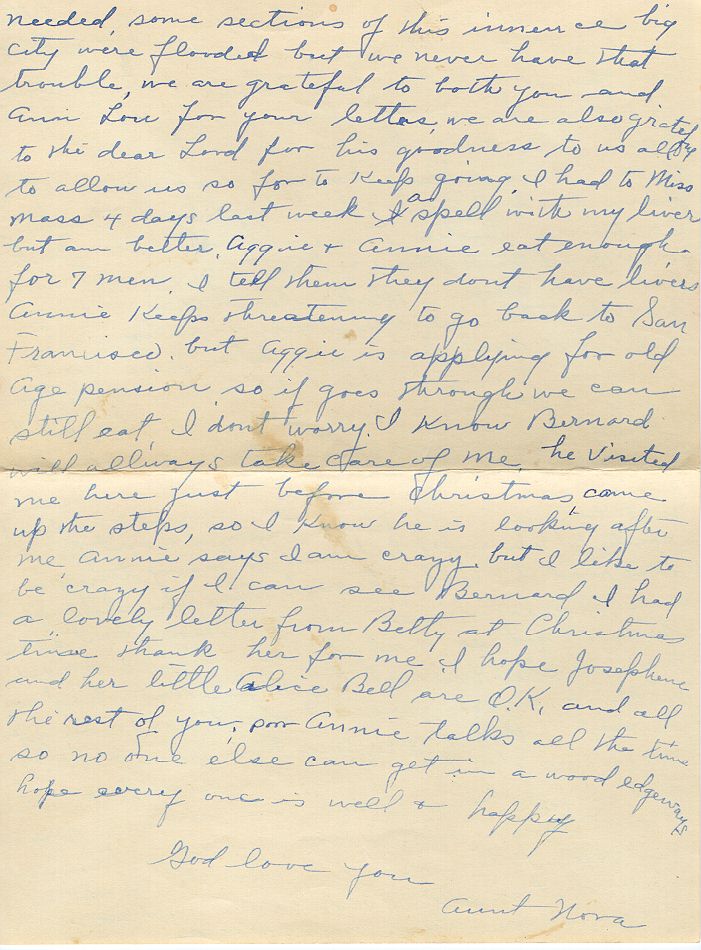 needed, some sections of this innence big
city were flooded but we never have that
trouble, we are grateful to both you and
Ann Lou for your letters, we are also grateful
to the dear Lord for his goodness to us all by
to allow us so far to keep going, I had to Miss
Mass 4 days last week I a spell with my liver
but am better, Aggie + Annie eat enough
for 7 men, I tell them they dont have livers
Annie Keeps threatening to go back to San
Francisco. but Aggie is applying for old
age pension, so if goes through we can
still eat, I dont worry. I Know Bernard
will allways take care of me, he visited
me here just before Christmas, came
up the steps, so I know he is looking after
me Annie says I am crazy, but I like to
be crazy if I can see Bernard, I had
a lovely letter from Betty at Christmas
time thank her for me, I hope Josephene
and her little Alice Bell are O.K, and all
the rest of you, poor Annie talks all the time
so no one else can get in a wood edgeways
hope every one is well + happy
God love you
Aunt Nora